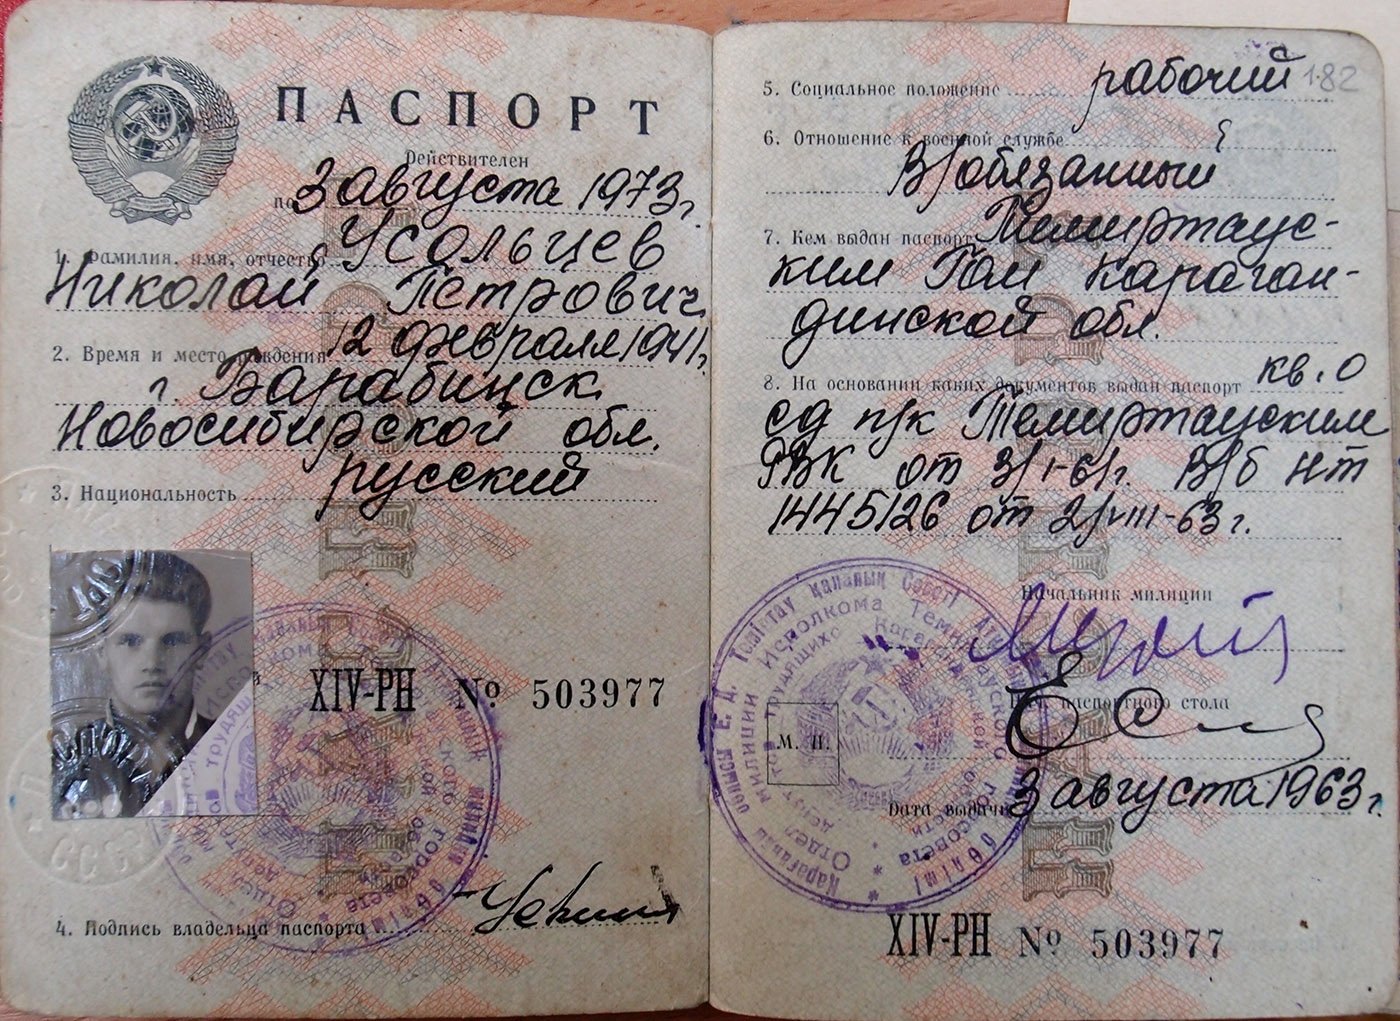 ПАСПОРТ
Действителен
по 3 августа 1973 г.
1. Фамилия, имя, отчество Усольцев
Николай Петрович
2. Время и место рождения 12 февраля 1941 г.
г. Барабинск
Новосибирской обл.
3. Национальность русский
XIV-РН № 503977
4. Подпись владельца паспорта
СССР
5. Социальное положение рабочий 182
6. Отношение к военной службе
В/обязанный
7. Кем выдан паспорт Темиртаус-
ким Гом Караган-
динской обл.
8. На основании каких документов выдан паспорт кв. О
сд п/к Темиртауским
РВК от 3/I-61г. В/б НТ
1445126 от 2/VIII-63 г.
Начальник милиции
Нач. паспортного стола
М. П.
Дата выдачи 3 августа 1963 г.
XIV-РН № 503977